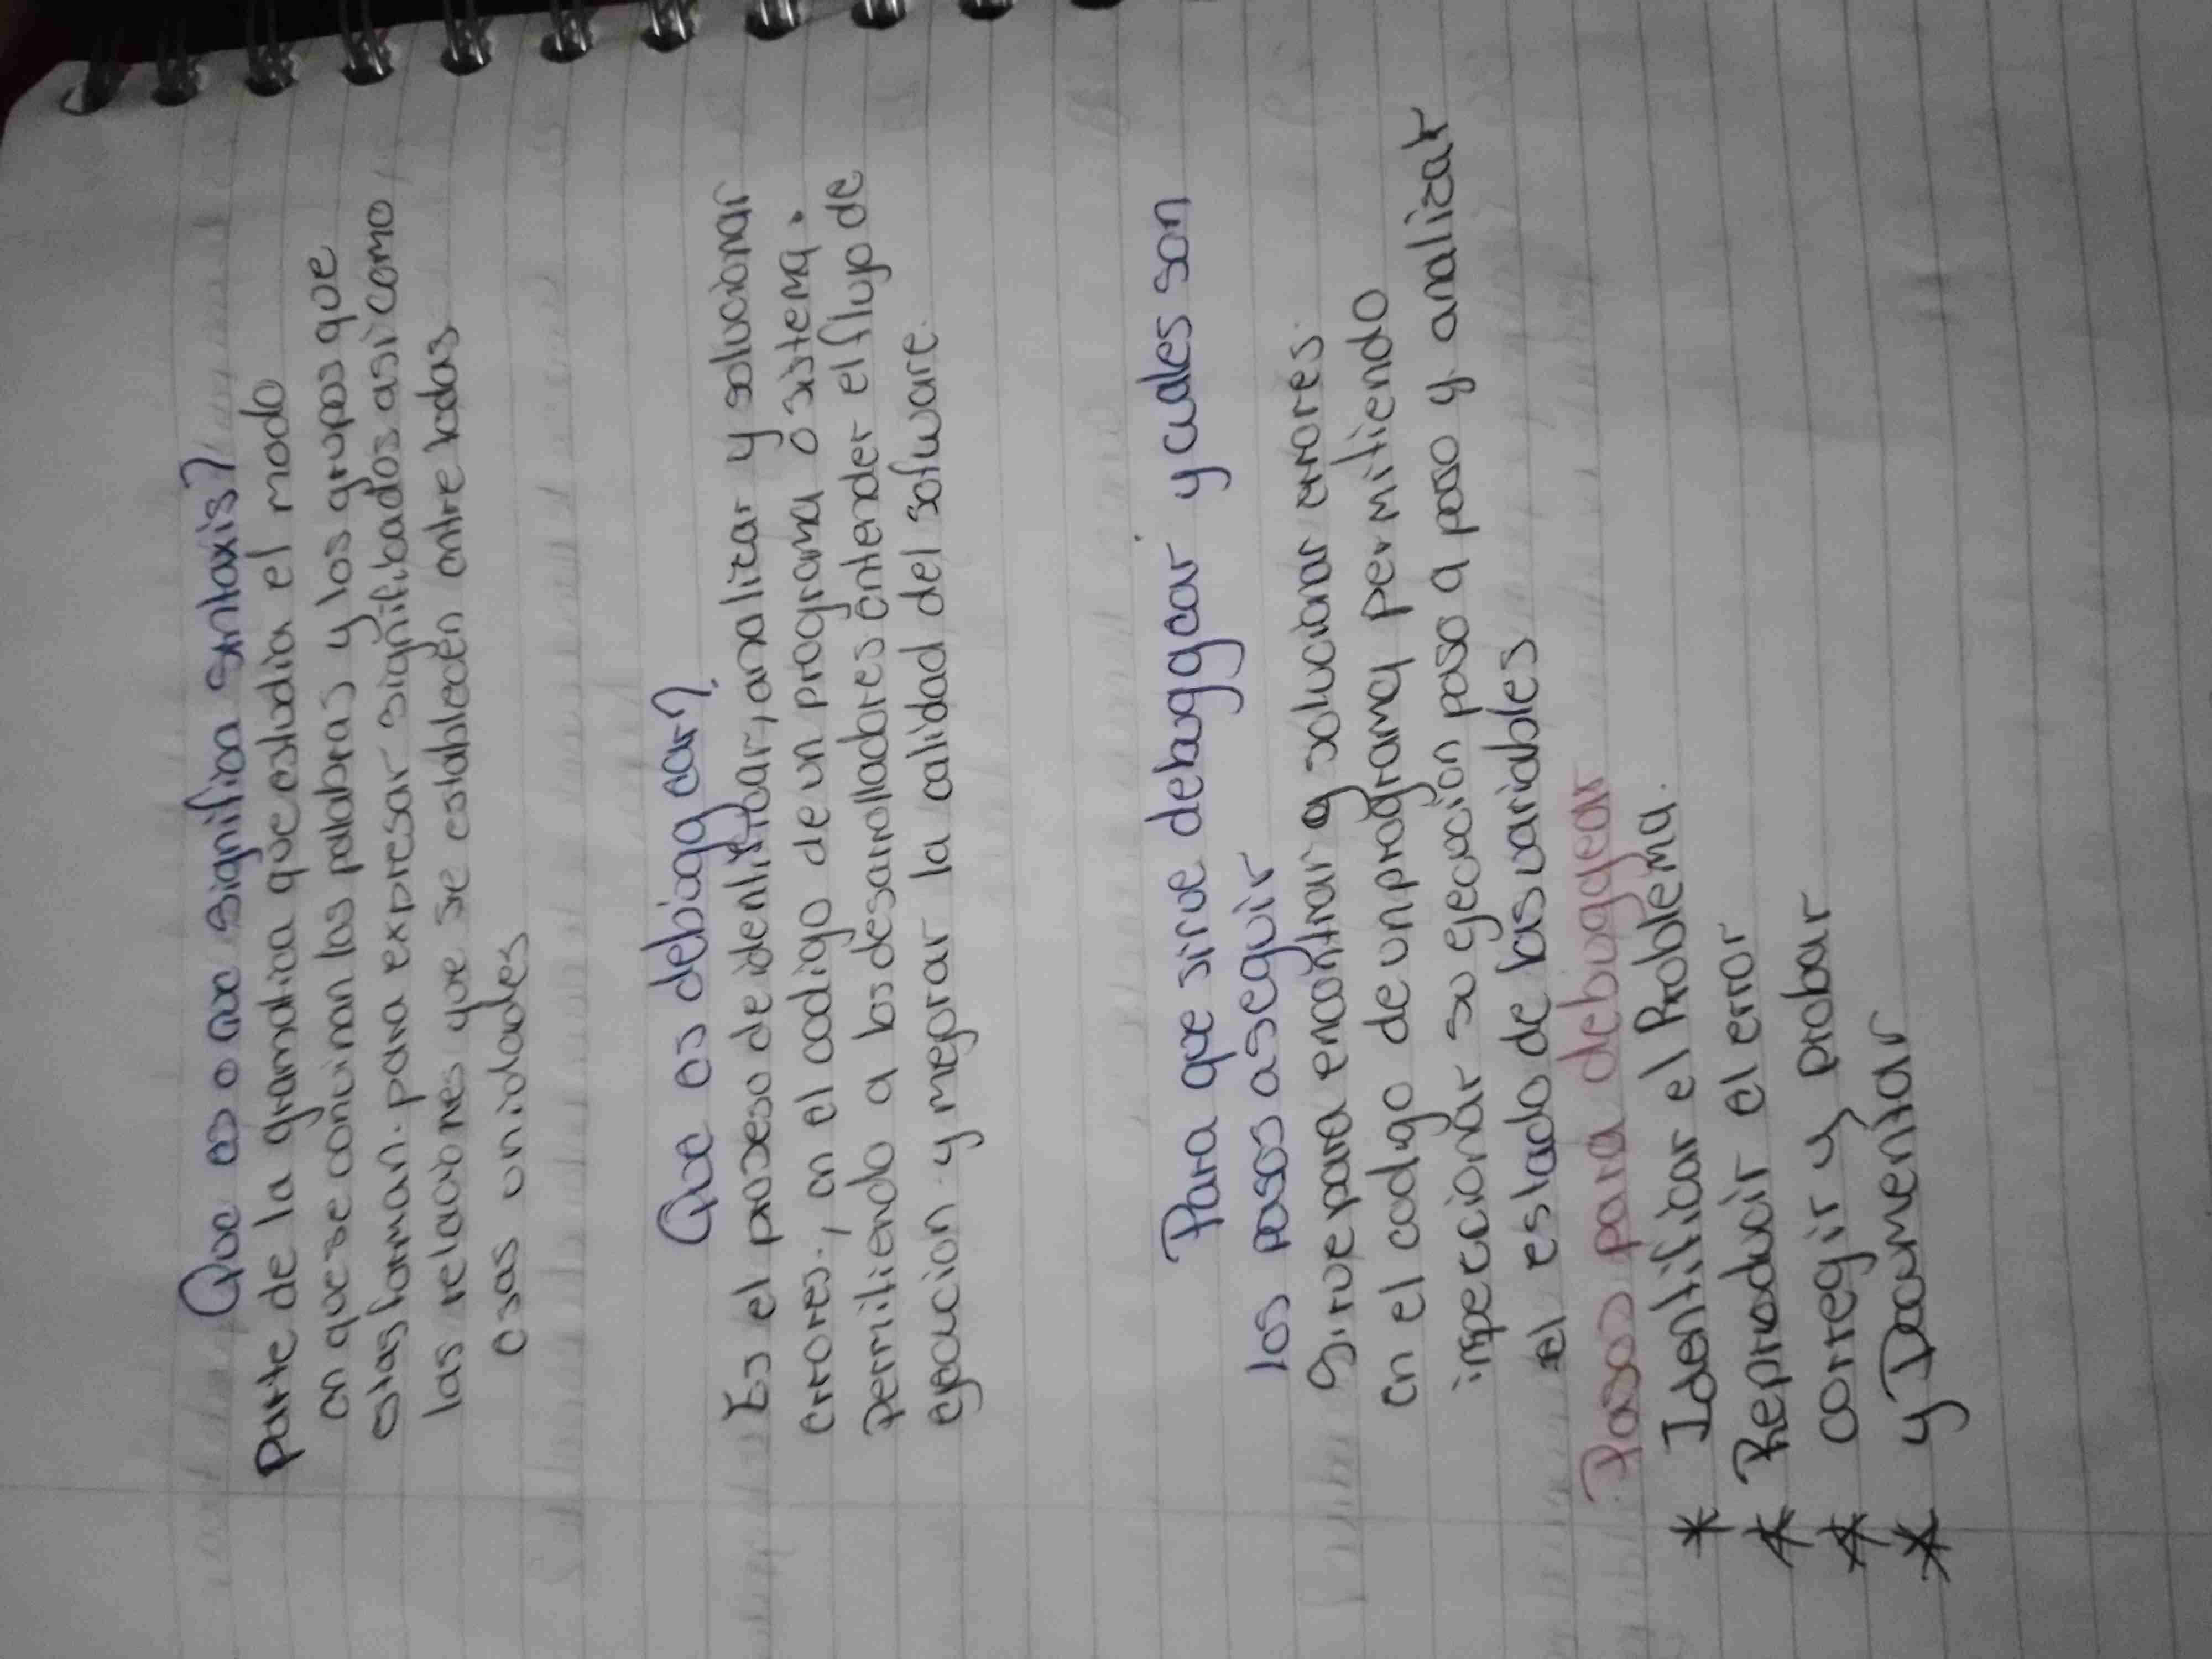 Que es o que significa sintaxis?
Parte de la gramatica que estudia el modo
en que se convinan las palabras y los grupos que
estas forman. para expresar significados asi como
las relaciones que se establecen entre todas
esas unidades
Que es debugg car?
Es el proceso de identificar, analizar y solucionar
errores., en el codigo de un programa o sistema.
Permitiendo a los desarrolladores entender el flujo de
ejecucion y mejorar la calidad del sofware.
Para que sirve debuggear y cuales son
los pasos a seguir
Sirve para encontrar y solucionar errores.
en el codigo de un programa, permitiendo
inspeccionar su ejecución paso a paso y analizar
el estado de las variables
Pasos para debuggear
* Identificar el Problema.
* Reproducir el error
* corregir y probar
* y Documentar